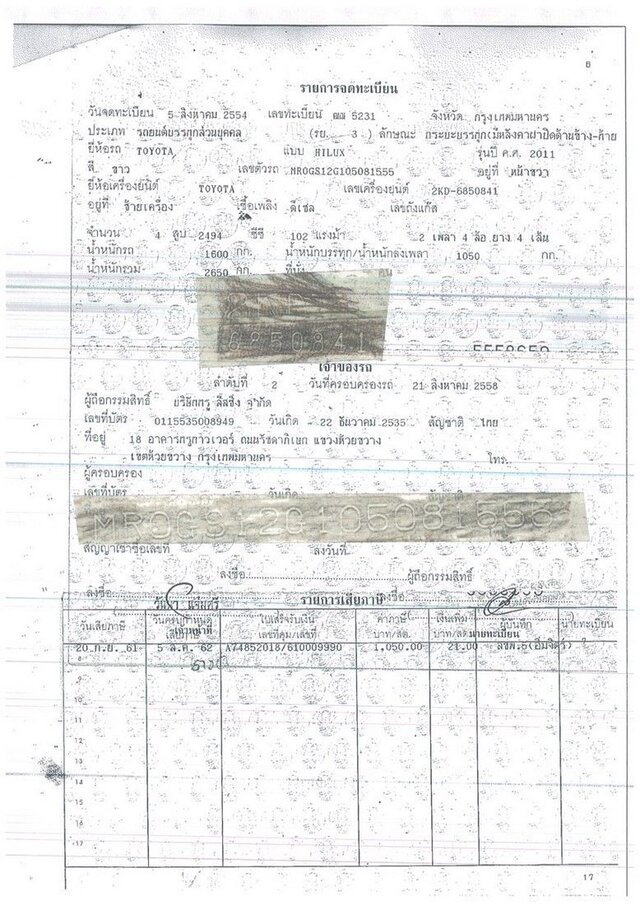 8
รายการจดทะเบียน
วันจดทะเบียน 5 สิงหาคม 2554 เลขทะเบียน ฒฒ 5231 จังหวัด กรุงเทพมหานคร
ประเภท รถยนต์บรรทุกส่วนบุคคล (รย. 3 ) ลักษณะ กระบะบรรทุก(มีหลังคาฝาปิดด้านข้าง-ท้าย
ยี่ห้อรถ TOYOTA แบบ HILUX รุ่นปี ค.ศ. 2011
สี ขาว เลขตัวรถ MROGS12G105081555 อยู่ที่ หน้าขวา
ยี่ห้อเครื่องยนต์ TOYOTA เลขเครื่องยนต์ 2KD-6850841
อยู่ที่ ซ้ายเครื่อง เชื้อเพลิง ดีเซล เลขถังแก๊ส
จำนวน 4 สูบ 2494 ซีซี 102 แรงม้า 2 เพลา 4 ล้อ ยาง 4 เส้น
น้ำหนักรถ 1600 กก. น้ำหนักบรรทุก/น้ำหนักลงเพลา 1050 กก.
น้ำหนักรวม 2650 กก. ที่นั่ง คน
6850841
เจ้าของรถ
ลำดับที่ 2 วันที่ครอบครองรถ 21 สิงหาคม 2558
ผู้ถือกรรมสิทธิ์ บริษัทกรุงไทย จำกัด
เลขที่บัตร 0115535008949 วันเกิด 22 ธันวาคม 2535 สัญชาติ ไทย
ที่อยู่ 18 ถนนรัชดาภิเษก แขวงห้วยขวาง
เขตห้วยขวาง กรุงเทพมหานคร โทร.
ผู้ครอบครอง
เลขที่บัตร วันเกิด
MROGS12G105081555
สัญญาเช่าซื้อเลขที่ ลงวันที่
ลงชื่อ ผู้ถือกรรมสิทธิ์
ลงชื่อ
รายการเสียภาษี
วันเสียภาษี วันครบกำหนด ใบเสร็จรับเงิน ค่าภาษี เงินเพิ่ม ผู้บันทึก นายทะเบียน
เสียภาษี เลขที่คุม/เลขที่ บาท/สต. บาท/สต. นายทะเบียน
20 ก.ย. 61 5 ส.ค. 62 A74852018/610009990 1,050.00 21.00
9
10
11
12
13
14
15
16
17
17